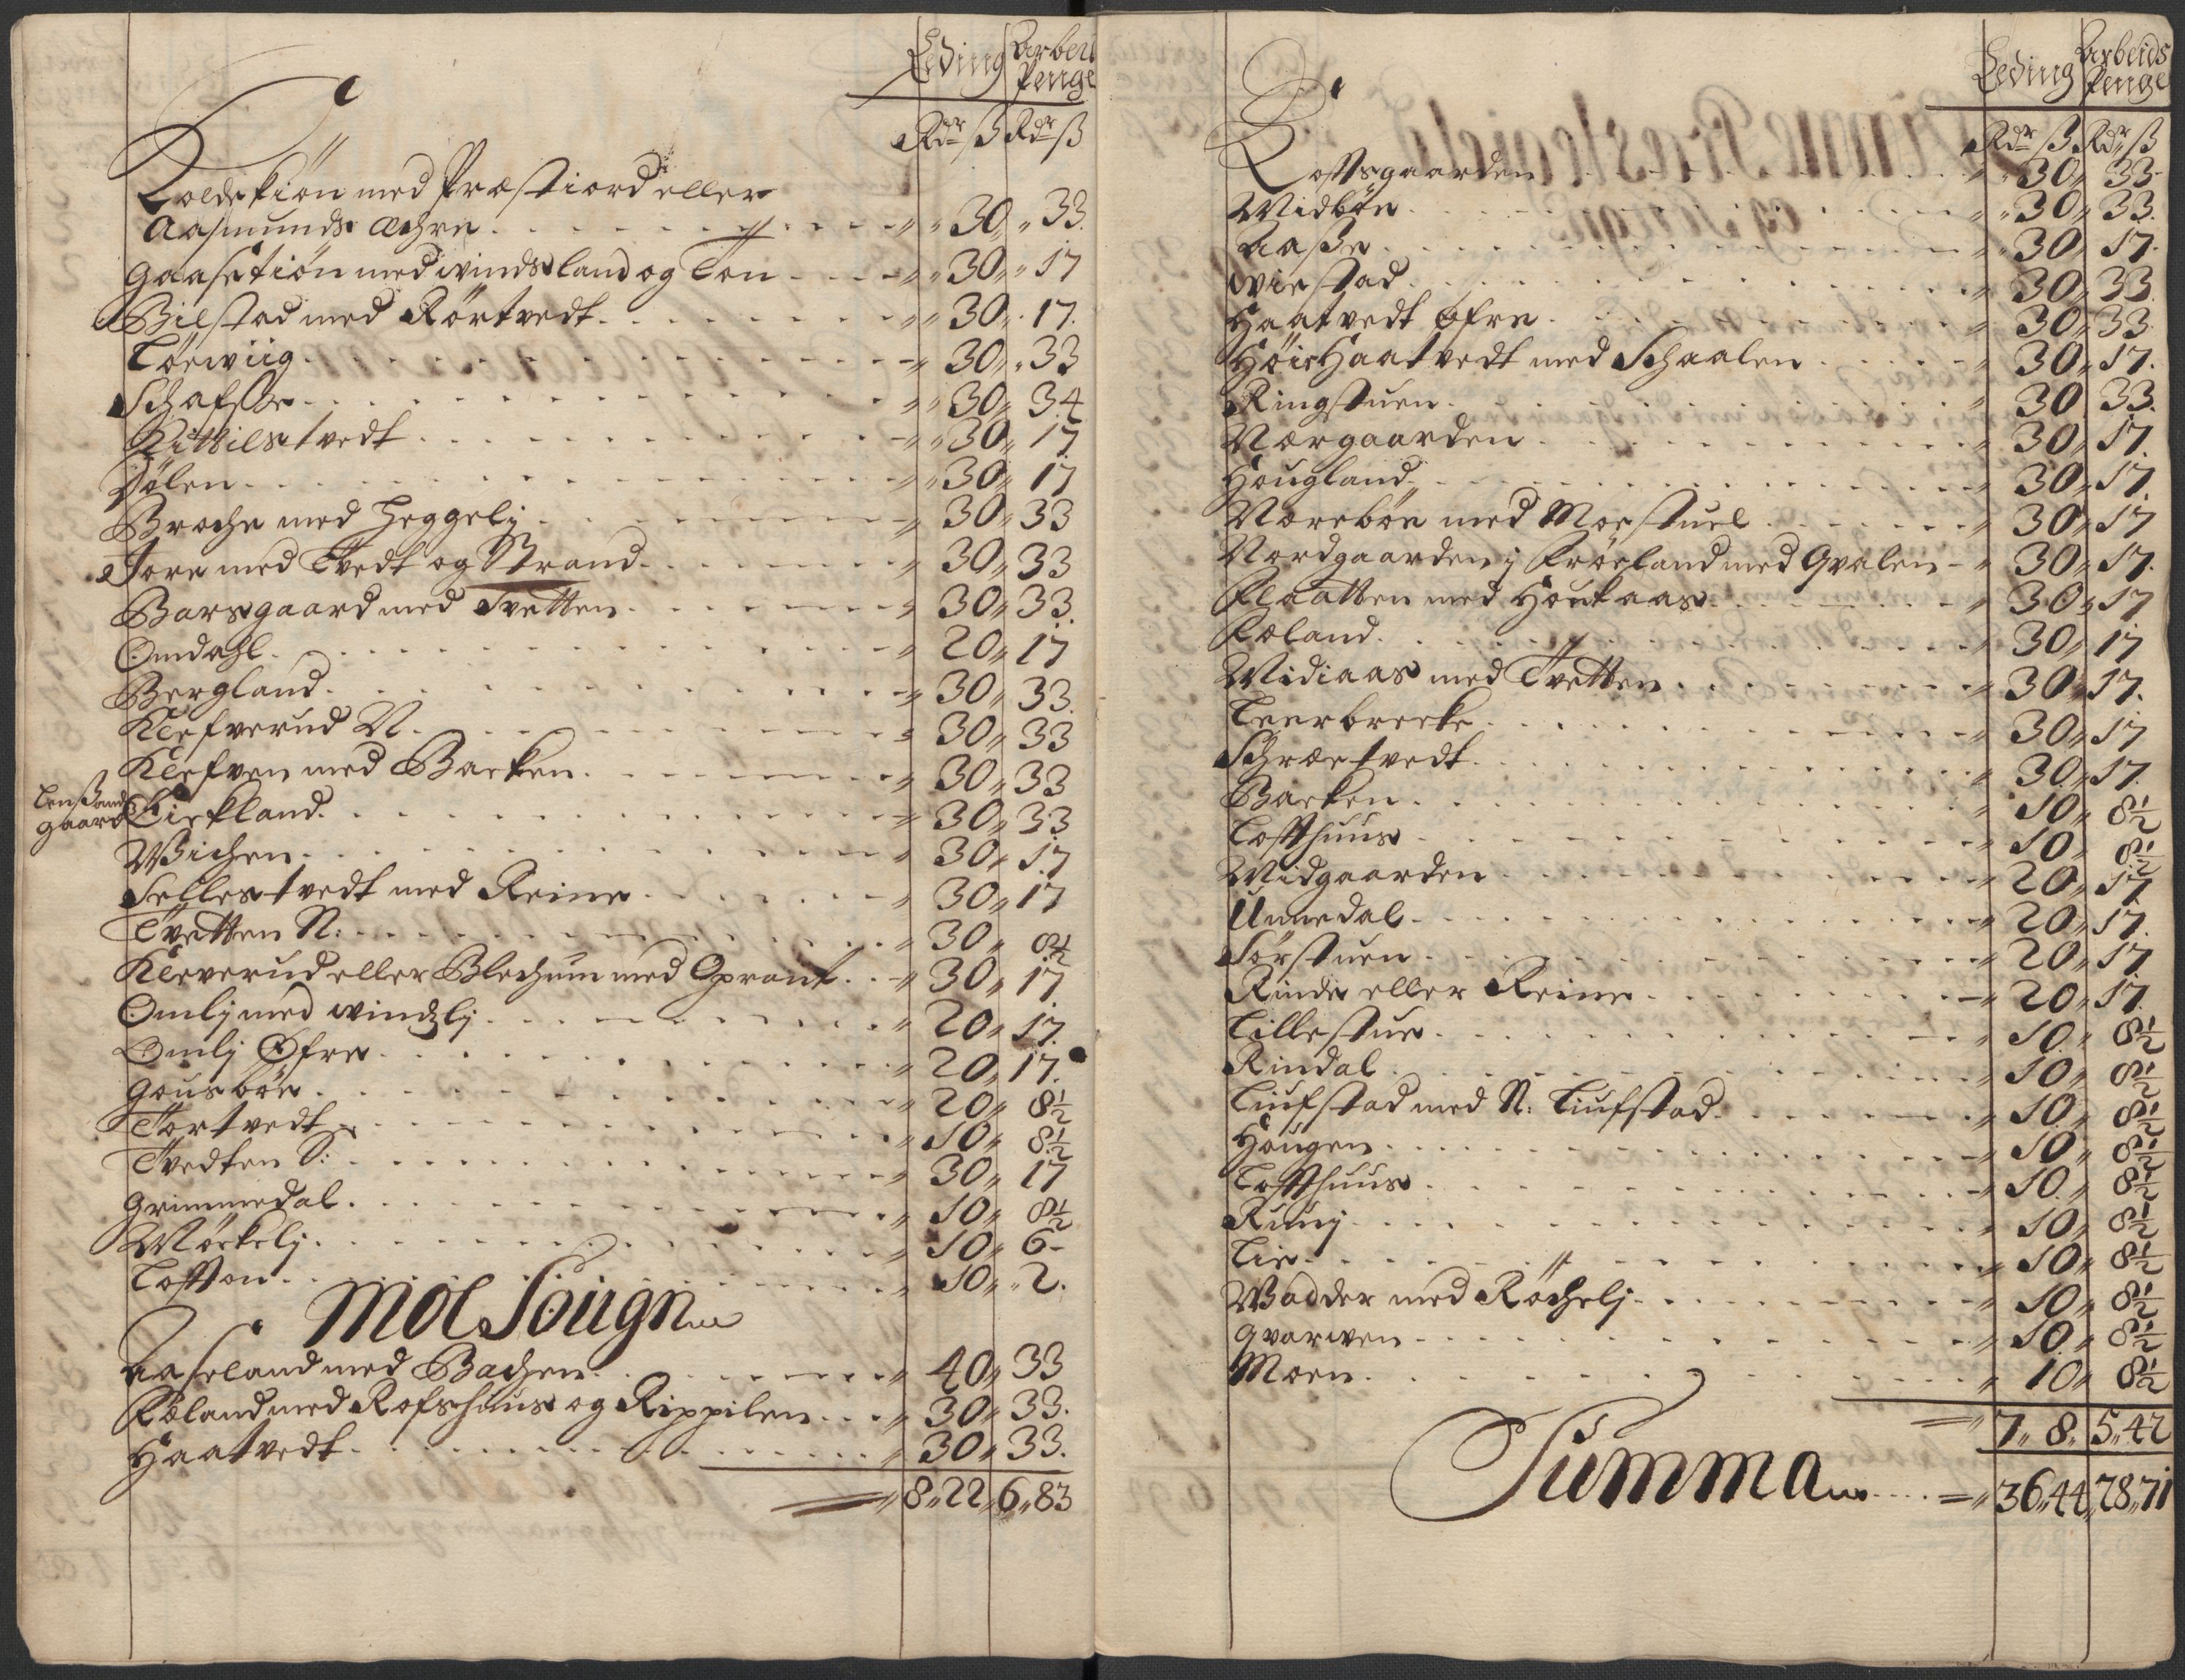 Leding Arbeids Penge
Rdr ß Rdr ß
Koldskiön med Præstiord eller
Aasmunds Æchre „ „ 30 „ „ 33
Gaasetiön med windsland og Ton „ „ 30 „ „ 17
Bilstad med Rörtvedt „ „ 30 „ 17
Löewiig „ 30 „ „ 33
Schafsse „ „ 30 „ 34
Kittilstvedt „ „ 30 „ 17
Dölen „ „ 30 „ 17
Broche med Heggelj „ 30 „ 33
Jore med Tvedt og Strand „ 30 „ 33
Barsgaard med Tvetten „ 30 „ 33
Omdahl „ 20 „ 17
Bergland „ 30 „ 33
Klefverud N „ 30 „ 33
Klefven med Barken „ 30 „ 33
Lensmands gaard Kirkland „ 30 „ 33
Wichen „ 30 „ 17
Sellestvedt med Reine „ 30 „ 17
Tvetten N: „ 30 „ 8½
Kleverud eller Blechum med Gprant „ 30 „ 17
Omlj med windlj „ 20 „ 17
Omlj Øfre „ 20 „ 17
Gousböe „ 20 „ 8½
Tortvedt „ 10 „ 8½
Tvedten S: „ 30 „ 17
Grimmedal „ 10 „ 8½
Mörkelj „ 10 „ 6
Loffton „ 10 „ „ 2
Moe Sougn
Aaseland med Bachen „ 40 „ 33
Foland med Rofshuus og Kippilen „ 30 „ 33
Haatvedt „ 30 „ 33
„ 8 „ 22 „ 6 „ 83
Leding Arbeids Penge
Rdr ß Rdr ß
Lofftsgaarden „ „ 30 „ 33
Midböe „ „ 30 „ 33
Aaße „ „ 30 „ 17
Wiestad „ 30 „ 33
Haatvedt øfre „ 30 „ 33
Höie Haatvedt med Schaalen „ 30 „ 17
Ringstuen „ 30 33
Nærgaarden „ 30 „ 17
Hougland „ 30 „ 17
Norebön med Moestuel „ 30 „ 17
Nordgaarden j Fröeland med Gvalen „ 30 „ 17
Flaatten med Houkaas „ 30 „ 17
Foland „ 30 „ 17
Midiaas med Tvetten „ 30 „ 17
Leerbrecke „ 30 „ 17
Schrætvedt „ 30 „ 17
Barken „ 10 „ 8½
Loffthuus „ 10 „ 8½
Midgaarden „ 20 „ 17
Unnedal „ 20 „ 17
Sörstuen „ 20 „ 17
Rinde eller Reine „ 20 „ 17
Lillestue „ 10 „ 8½
Rindal „ 10 „ 8½
Liufstad med N: Liufstad „ 10 „ 8½
Hougen „ 10 „ 8½
Loffthuus „ 10 „ 8½
Ruuj „ 10 „ 8½
Lie „ 10 „ 8½
Wadder med Röchelj „ 10 „ 8½
Qvarwen „ 10 „ 8½
Moen „ 10 „ 8½
7 „ 8 „ 5 „ 42
Summa „ 36 „ 44 „ 28 „ 71